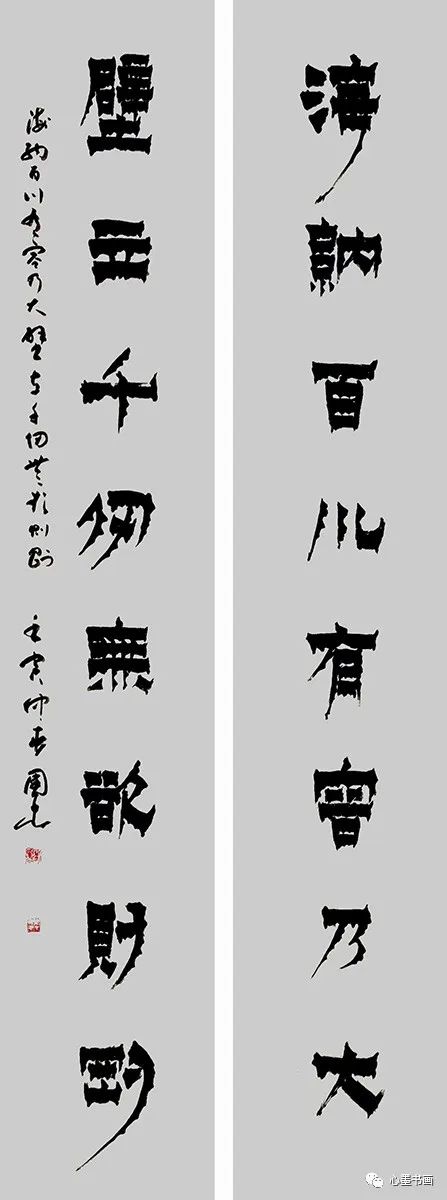 海納百川有容乃大
壁立千仞無欲則剛
海納百川有容乃大壁立千仞無欲則剛
壬寅仲春
心墨书画